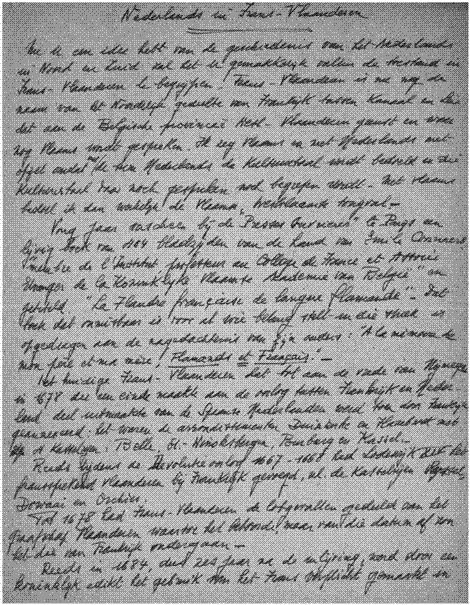 Nederlands in Frans-Vlaanderen
Nu U een idee hebt van de geschiedenis van het Nederlands
in Noord en Zuid zal het U gemakkelijk vallen de toestand in
Frans-Vlaanderen te begrijpen. Frans-Vlaanderen is nu nog de
naam van het Noordelijk gedeelte van Frankrijk tussen Kanaal en Leie
dat aan de Belgische provincie West-Vlaanderen grenst en waar
nog Vlaams wordt gesproken. Ik zeg Vlaams en niet Nederlands met
opzet omdat de term Nederlands de Kultuurtaal wordt bedoeld en die
Kultuurtaal daar noch gesproken noch begrepen wordt. Met Vlaams
bedoel ik dan werkelijk de Vlaamse, Westvlaamse tongval.-
Vorig jaar verscheen bij de "Presses Universitaires" te Parijs een
lijvig boek van 1184 bladzijden van de hand van Emile Coornaert
"membre de l'Institut professeur au College de France et Associé
étranger de la Koninklijke Vlaamse Academie van België" en
getiteld "La Flandre française de langue flamande".- Dat
boek dat onmisbaar is voor al wie belang stelt in die streek is
opgedragen aan de nagedachtenis van zijn ouders: "A la mémoire de
mon père et ma mère, Flamands et Français".-
Het huidige Frans-Vlaanderen dat tot aan de vrede van Nijmegen
in 1678 die een einde maakte aan de oorlog tussen Frankrijk en Neder-
land deel uitmaakte van de Spaanse Nederlanden werd toen door Frankrijk
geannexeerd: het waren de arrondissementen Duinkerke en Hazebroek met
4 Kasselrijen: Belle, St.-Winoksbergen, Broekburg en Kassel.-
Reeds tijdens de Devolutieoorlog 1667-1668 had Lodewijk XIV het
franssprekend Vlaanderen bij Frankrijk gevoegd, nl. de Kasselrijen Rijssel,
Dowaai en Orchies.
Tot 1678 had Frans-Vlaanderen de lotgevallen gedeeld van het
graafschap Vlaanderen waartoe het behoorde, maar van die datum af zou
het die van Frankrijk ondergaan.-
Reeds in 1684, dus zes jaar na de inlijving, werd door een
koninklijk edikt het gebruik van het Frans verplicht gemaakt in